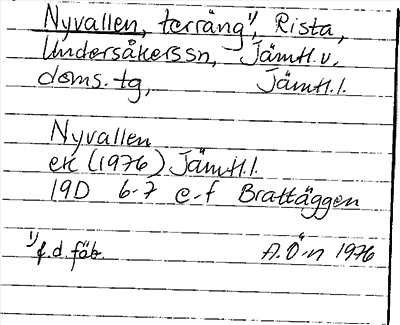 Nyvallen, terräng¹⁾, Rista,
Undersåkers sn, Jämtl. v.
doms. tg, Jämtl. l.
Nyvallen
ek (1976) Jämtl. l.
19D 6-7 e-f Brattäggen
¹⁾ f.d. fäb. A.Ö-n 1976